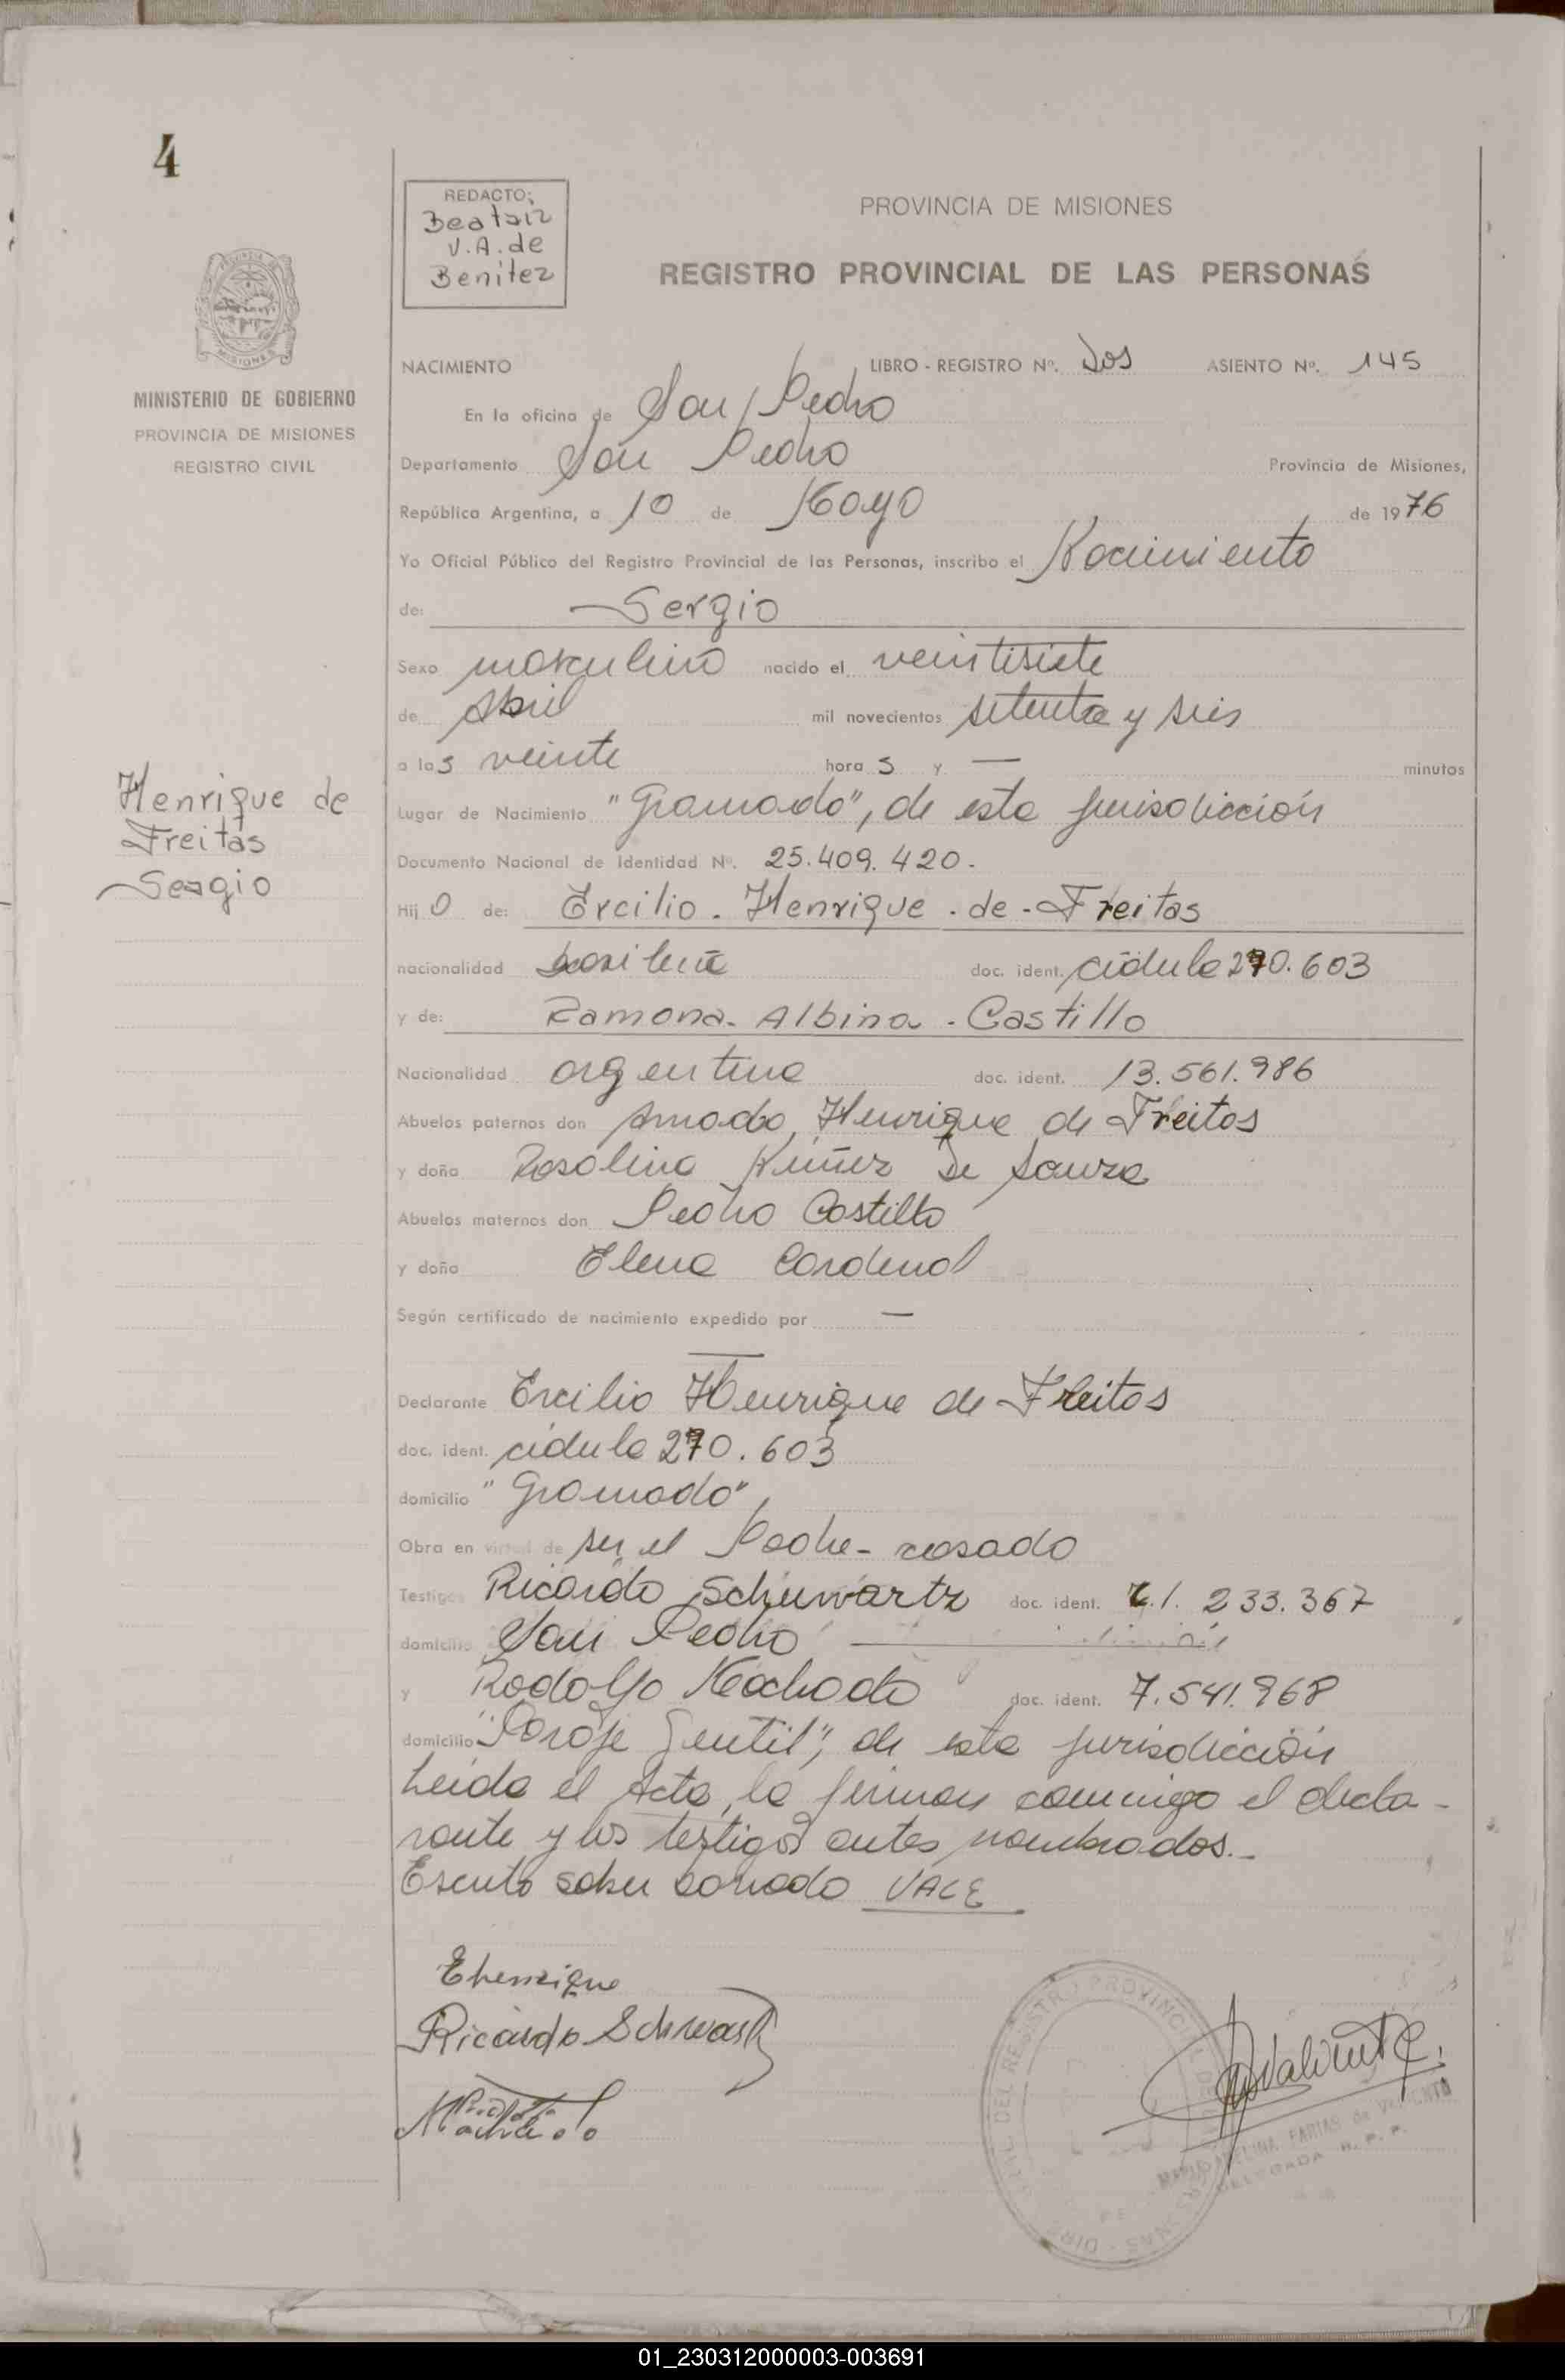 4
REDACTO:
Beatriz
V.A. de
Benitez
PROVINCIA DE MISIONES
REGISTRO PROVINCIAL DE LAS PERSONAS
MINISTERIO DE GOBIERNO
PROVINCIA DE MISIONES
REGISTRO CIVIL
NACIMIENTO LIBRO - REGISTRO Nº. Dos ASIENTO Nº. 145
En la oficina de San Pedro
Departamento San Pedro Provincia de Misiones,
República Argentina, a 10 de Mayo de 1976
Yo Oficial Público del Registro Provincial de las Personas, inscribo el Nacimiento
de: Sergio
Sexo masculino nacido el veintisiete
de Abril mil novecientos setenta y seis
a las veinte horas y — minutos
Lugar de Nacimiento "Gramado", de esta jurisdicción
Henrique de
Freitas
Sergio
Documento Nacional de Identidad Nº. 25.409.420.
Hijo de: Ercilio - Henrique - de - Freitas
nacionalidad brasileña doc. ident. cédula 270.603
y de: Ramona - Albina - Castillo
Nacionalidad argentina doc. ident. 13.561.986
Abuelos paternos don Amado Henrique de Freitas
y doña Rosalina Núñez De Souza
Abuelos maternos don Pedro Castillo
y doña Elena Cardenal
Según certificado de nacimiento expedido por —
Declarante Ercilio Henrique de Freitas
doc. ident. cédula 270.603
domicilio "Gramado",
Obra en virtud de ser el Padre - casado
Testigos Ricardo Schuwartz doc. ident. C.I. 233.367
domicilio San Pedro
y Rodolfo Machado doc. ident. 7.541.968
domicilio "Paraje Gentil", de esta jurisdicción
Leída el Acta, la firman conmigo el decla-
rante y los testigos antes nombrados.-
Escrito sober borrado VALE
Ehenrique
Ricardo Schwartz
Machado
MARIA FARIAS de VALIENTE
DELEGADA R. P. P.
01_230312000003-003691